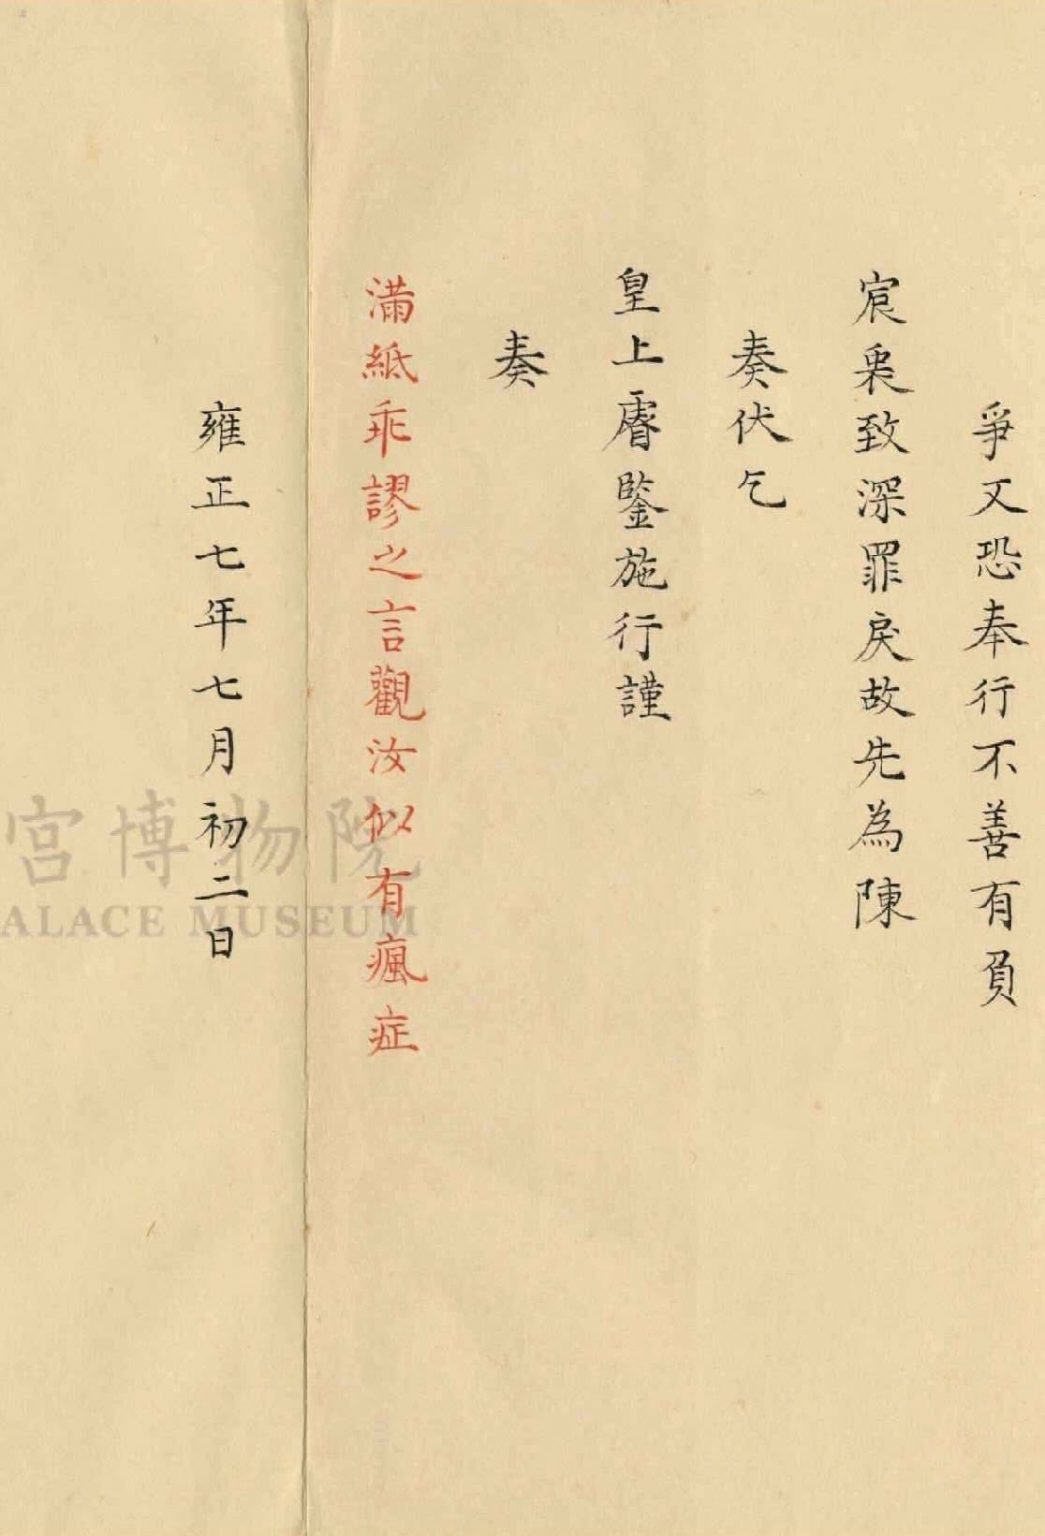 爭又恐奉行不善有負
宸衷致深罪戾故先為陳
奏伏乞
皇上睿鑒施行謹
奏
滿紙乖謬之言觀汝似有瘋症
雍正七年七月初二日
宮博物院
ALACE MUSEUM